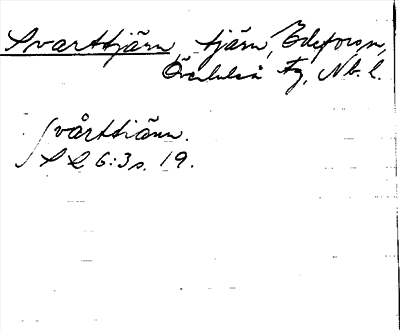 Svarttjärn, tjärn, Edefors sn,
Överluleå tg, Nb. l.
Svårttiänn.
SL 6:3 s. 19.